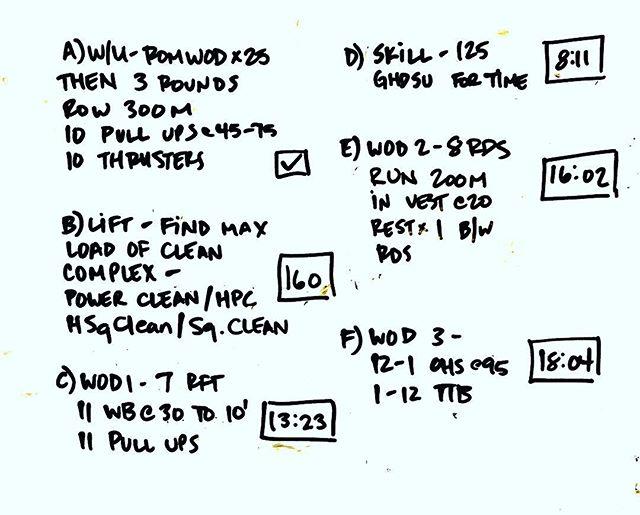 A) W/U - ROMWOD x 25
THEN 3 ROUNDS
ROW 300M
10 PULL UPS @ 45-75
10 THRUSTERS
B) LIFT - FIND MAX
LOAD OF CLEAN
COMPLEX -
POWER CLEAN/HPC
HSqClean/Sq. CLEAN
160
C) WOD 1 - 7 RFT
11 WB @ 30 TO 10'
11 PULL UPS
13:23
D) SKILL - 125
GHDSU FOR TIME
8:11
E) WOD 2 - 8 RDS
RUN 200M
IN VEST @ 20
REST x 1 B/W
RDS
16:02
F) WOD 3 -
12-1 OHS @ 95
1-12 TTB
18:04